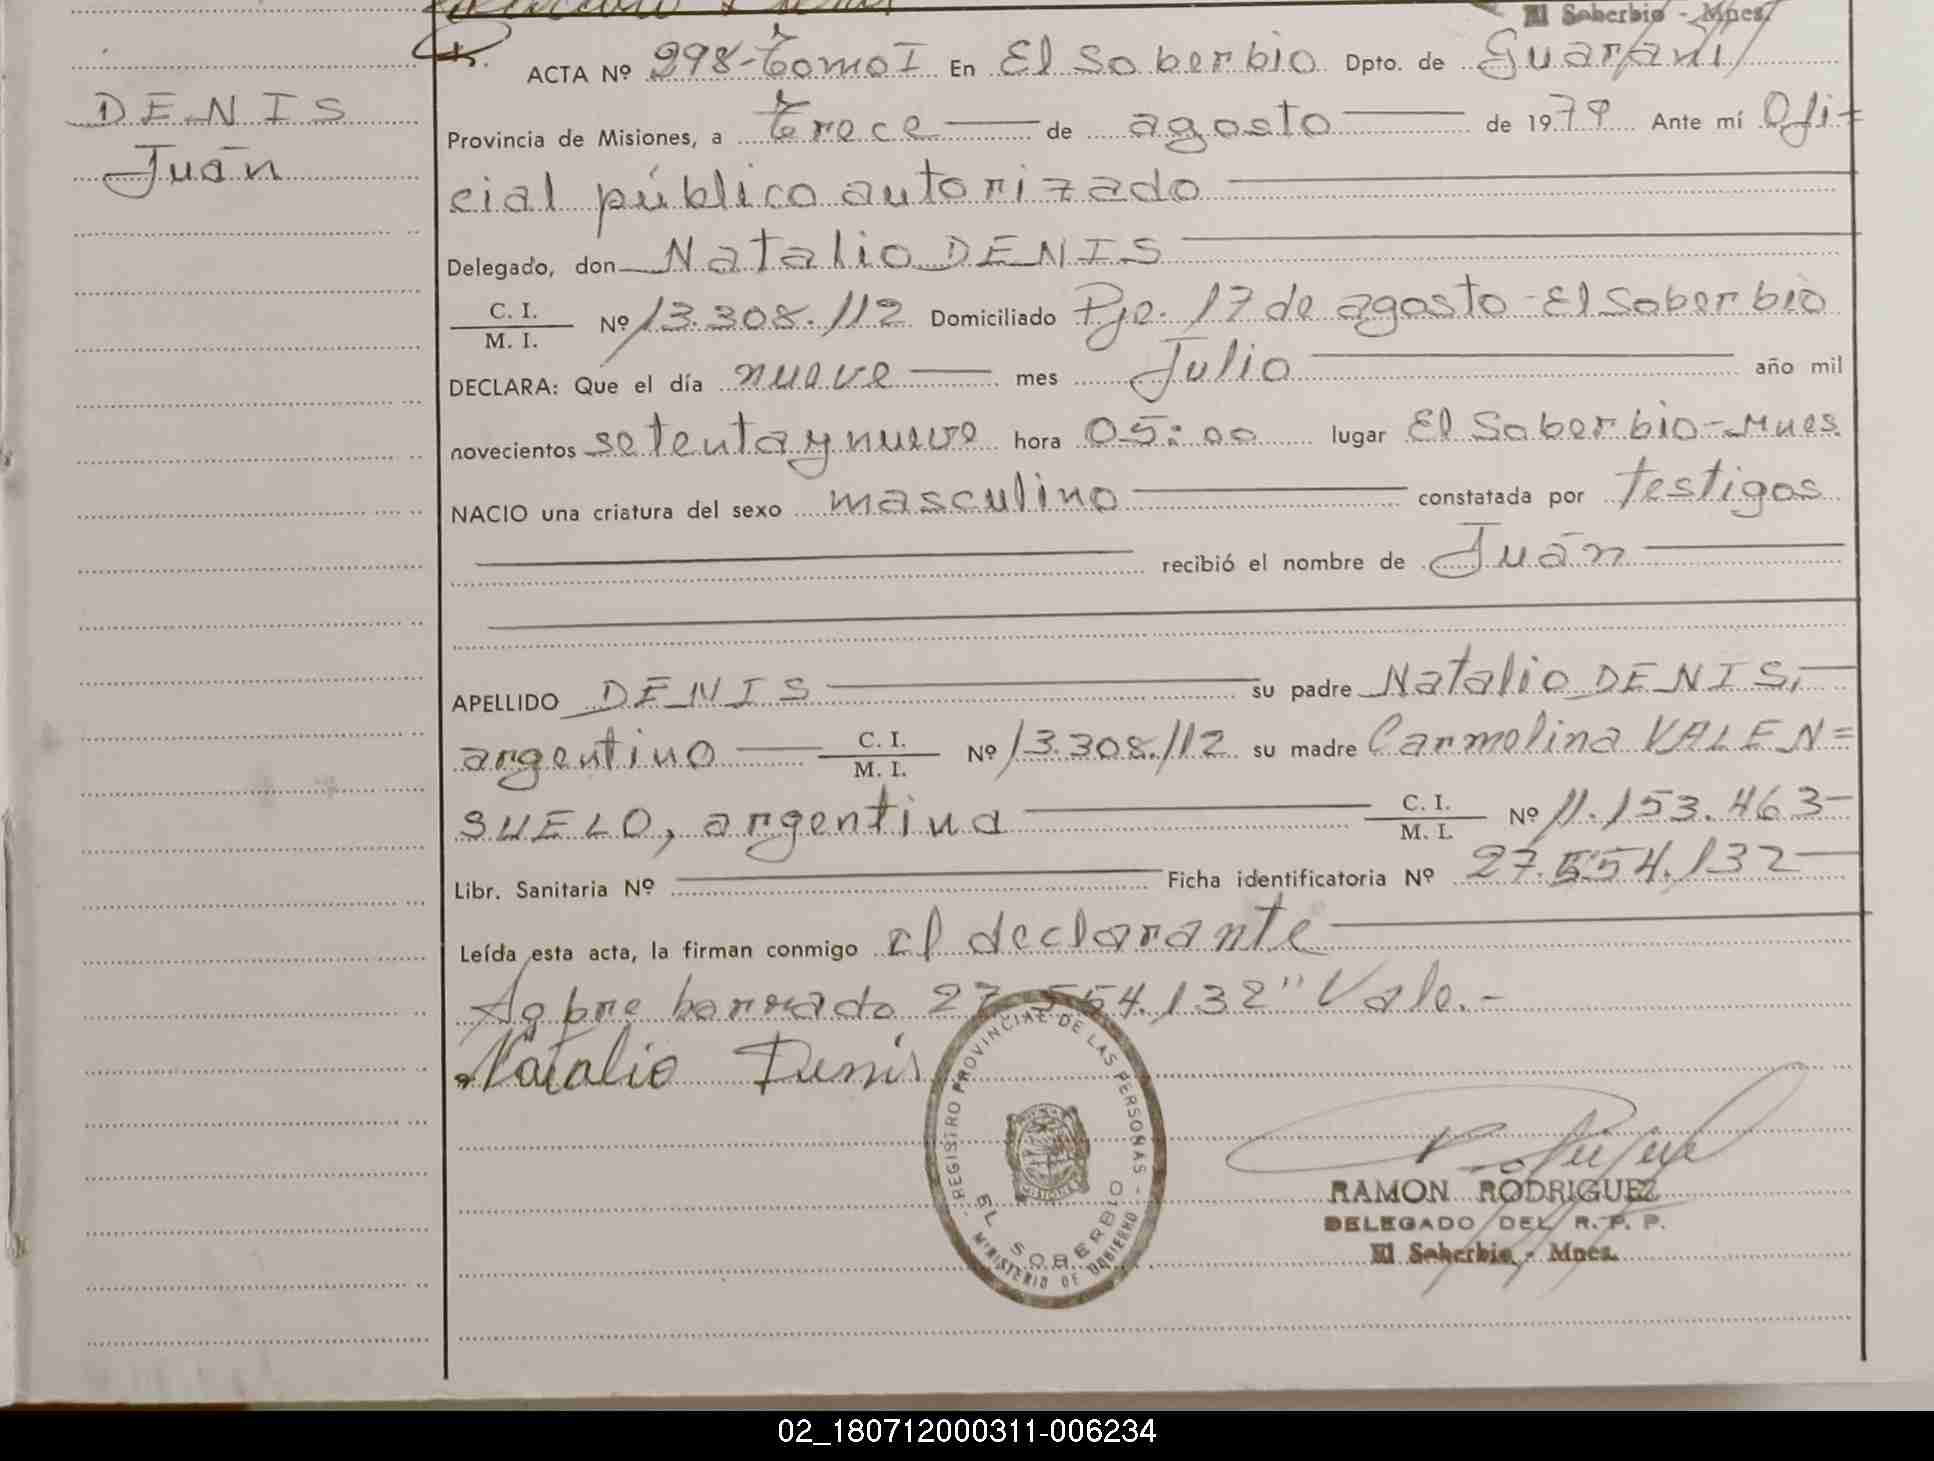 El Soberbio - Mnes.
ACTA Nº 298-Tomo I En El Soberbio Dpto. de Guaraní
DENIS
Provincia de Misiones, a trece de agosto de 1979 Ante mí Ofi=
Juán
cial público autorizado
Delegado, don Natalio DENIS
C. I.
M. I. Nº 13.308.112 Domiciliado Pje. 17 de agosto - El Soberbio
DECLARA: Que el día nueve mes Julio año mil
novecientos setenta y nueve hora 05:00 lugar El Soberbio-Mnes.
NACIO una criatura del sexo masculino constatada por testigos
recibió el nombre de Juán
APELLIDO DENIS su padre Natalio DENIS,
argentino C. I.
M. I. Nº 13.308.112 su madre Carmelina VALEN=
SUELO, argentina C. I.
M. I. Nº 11.153.463
Libr. Sanitaria Nº Ficha identificatoria Nº 27.554.132
Leída esta acta, la firman conmigo el declarante
Sobre borrado 27.554.132" Vale.-
Natalio Denis
REGISTRO PROVINCIAL DE LAS PERSONAS -
EL SOBERBIO
MINISTERIO DE GOBIERNO
RAMON RODRIGUEZ
DELEGADO DEL R. P. P.
El Soberbio - Mnes.
02_180712000311-006234